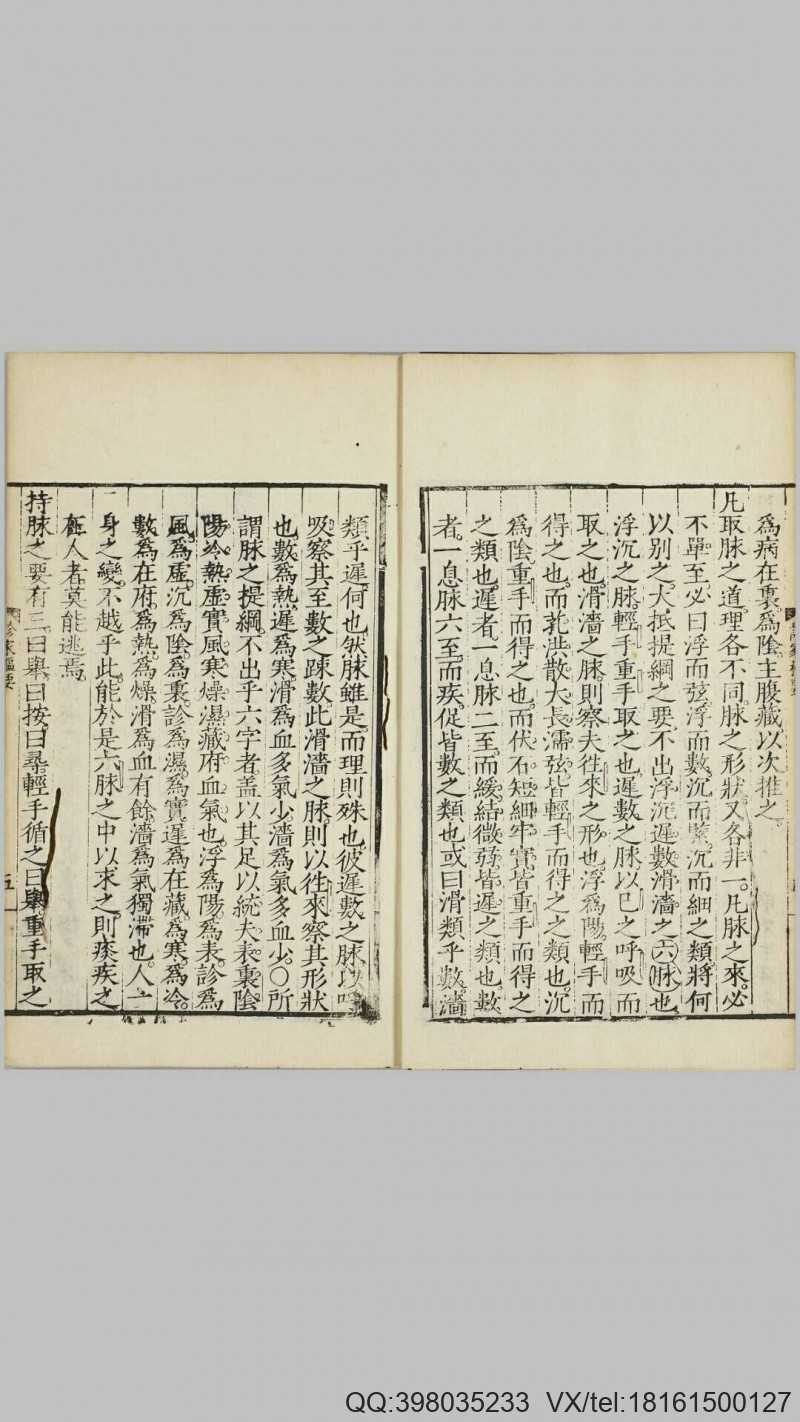 爲病在裏爲陰主腹藏以次推之。
凡取脉之道。理各不同。脉之形狀。又各非一。凡脉之來。必
不單至。必曰浮而弦。浮而數。沉而緊。沉而細之類。將何
以别之。大抵提綱之要。不出浮沉遲數滑濇之六脉也
浮沉之脉。輕手重手取之也。遲數之脉以已之呼吸而
取之也。滑濇之脉。則察夫徃來之形也。浮爲陽。輕手而
得之也。而芤洪散大長濡弦皆輕手而得之之類也。沉
爲陰。重手而得之也。而伏石短細牢實皆重手而得之
之類也。遲者。一息脉二至。而緩結微弱皆遲之類也。數
者。一息脉六至。而疾促皆數之類也。或曰滑類乎數。濇
類乎遲。何也。然脉雖是。而理則殊也。彼遲數之脉。以呼
吸察其至數之踈數。此滑濇之脉。則以徃來察其形狀
也。數爲熱。遲爲寒。滑爲血多氣少。濇爲氣多血少。〇所
謂脉之提綱。不出乎六字者。盖以其足以統夫表裏陰
陽冷熱虛實風寒燥濕藏府血氣也。浮爲陽爲表診爲
風。爲虛。沉爲陰。爲裏。診爲濕。爲實。遲爲在藏。爲寒。爲冷。
數爲在府。爲熱。爲燥。滑爲血有餘濇爲氣獨滯也。人一
身之變。不越乎此。能於是六脉之中以求之。則疾疾之
在人者。莫能逃焉。
持脉之要有三。曰舉。曰按。曰尋。輕手循之曰舉。重手取之
診家樞要
五
QQ:398035233 VX/tel:18161500127